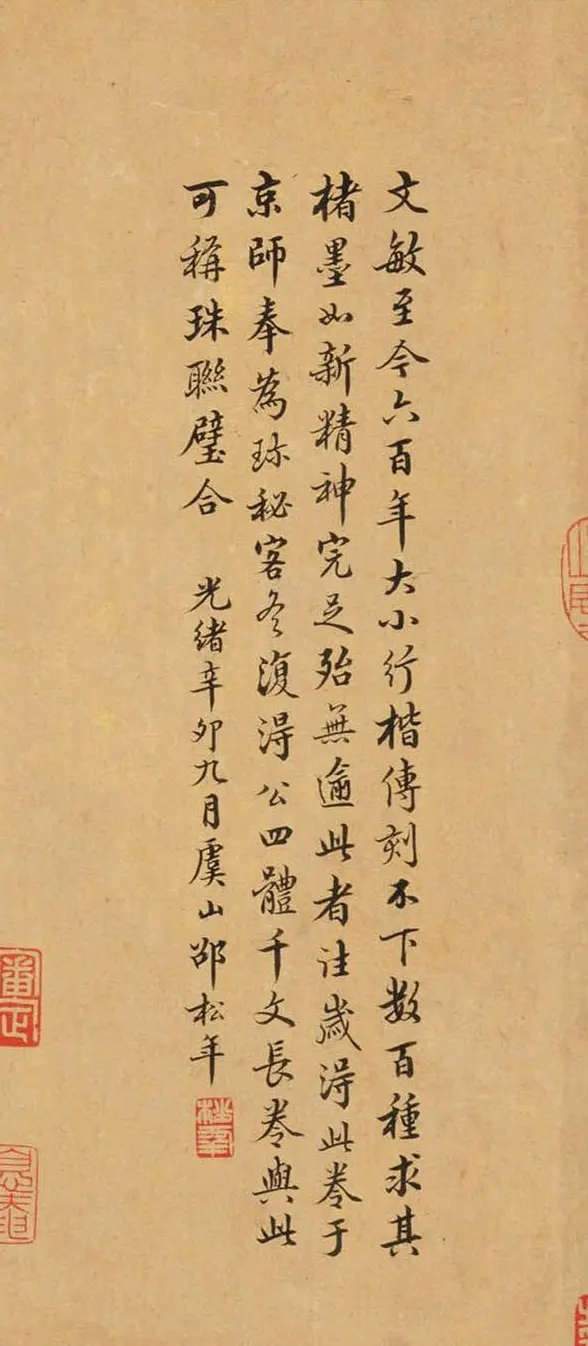 文敏至今六百年大小行楷傳刻不下數百種求其
楮墨如新精神完足殆無逾此者往歲得此卷于
京師奉為珎秘客冬復得公四體千文長卷與此
可稱珠聯璧合 光緒辛卯九月虞山邵松年
松年